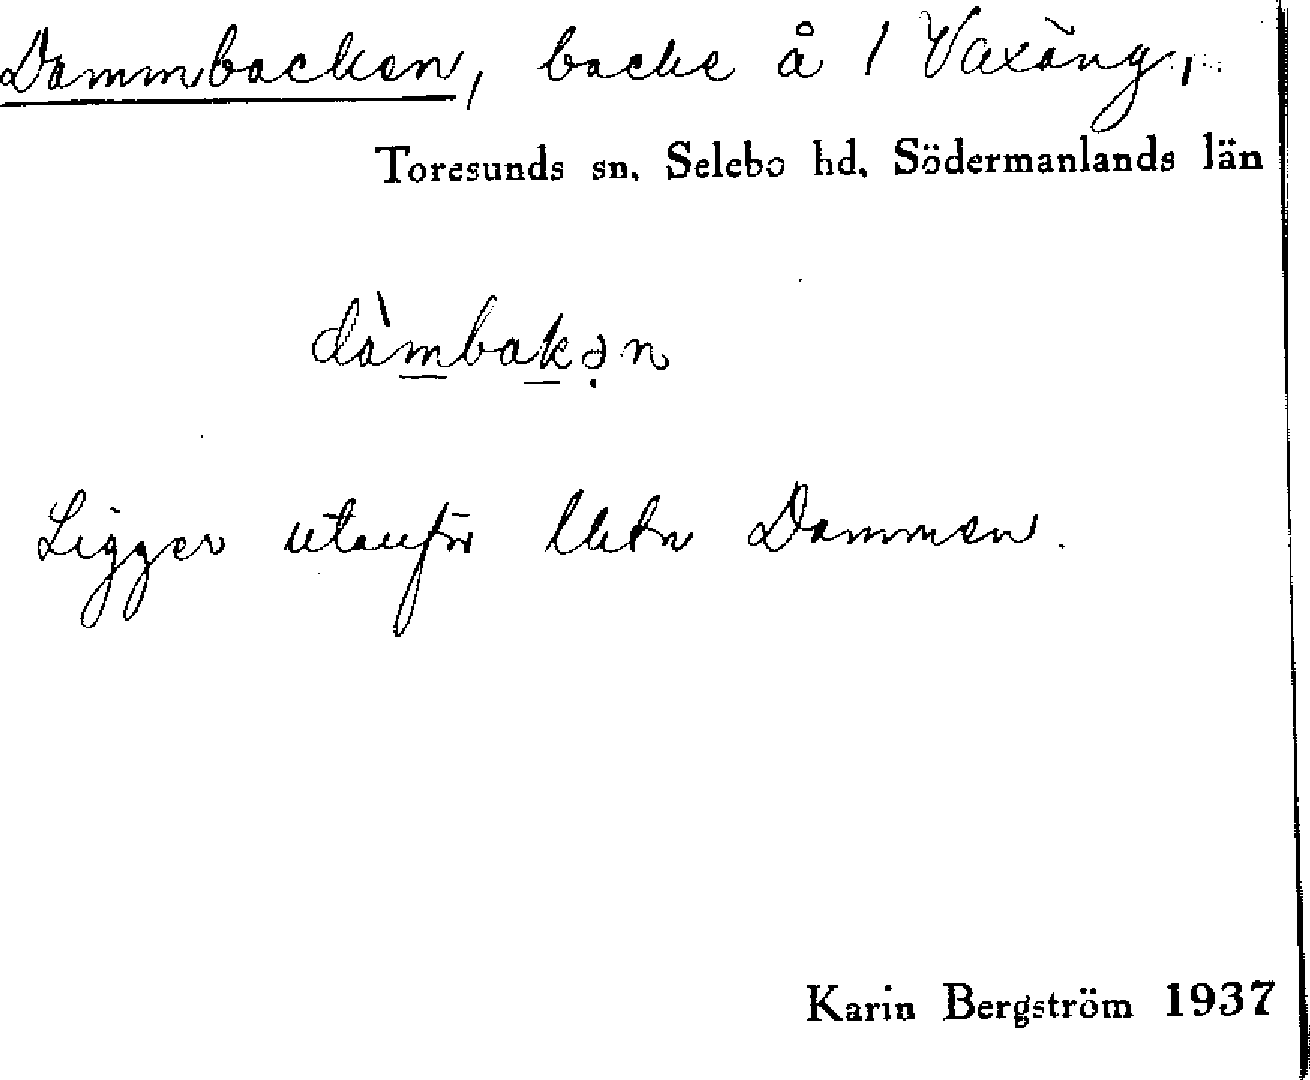 Dammbacken, backe å 1 Vaxäng,
Toresunds sn. Selebo hd. Södermanlands län
dàmbakən
Ligger utanför lht Dammen.
Karin Bergström 1937